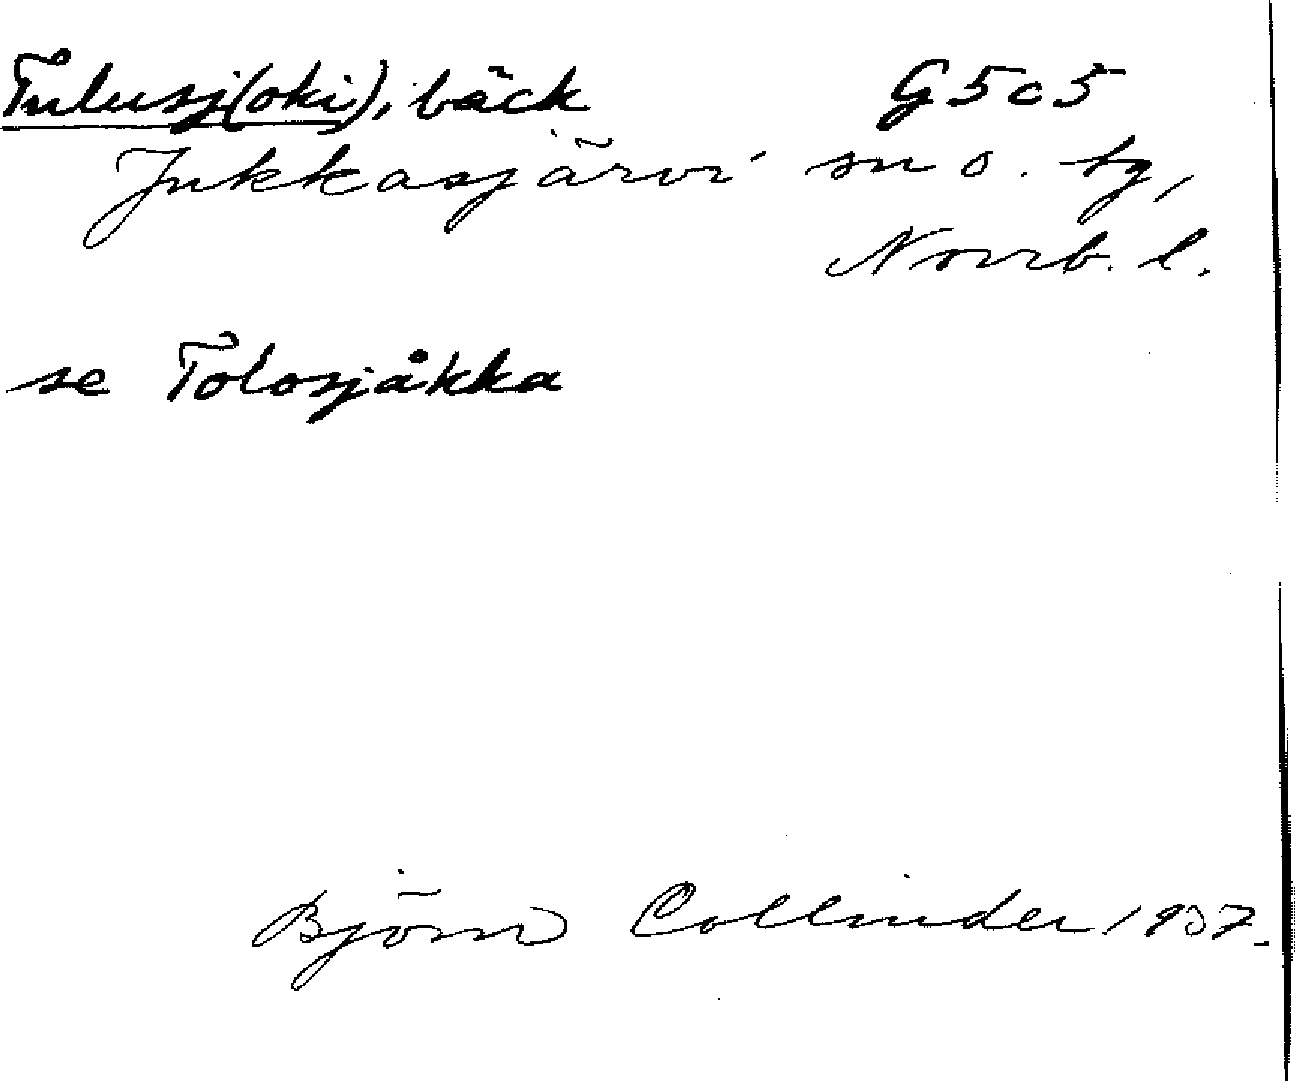 Tulusj(oki), bäck G5c5
Jukkasjärvi sn o. tg,
Norrb. l.
se Tolosjåkka
Björn Collinder 1957.